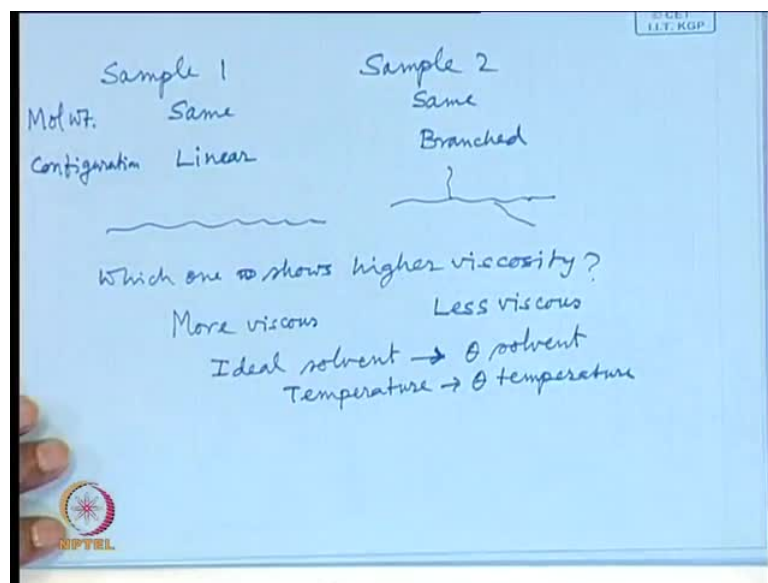 © CET
I.I.T. KGP
Sample 1 Sample 2
Mol wt. Same Same
Configuration Linear Branched
Which one shows higher viscosity?
More viscous Less viscous
Ideal solvent → θ solvent
Temperature → θ temperature
NPTEL